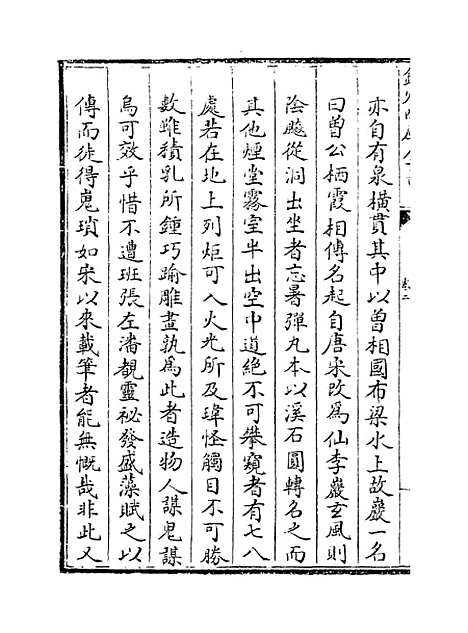 亦自有泉橫貫其中以曾相國布梁水上故巖一名
曰曾公栖霞相傳名起自唐宋改爲仙李巖玄風則
陰飈從洞出坐者忘暑彈丸本以溪石圓轉名之而
其他煙堂霧室半出空中道絕不可攀窺者有七八
處若在地上列炬可入火光所及瑋怪觸目不可勝
數雖積乳所鍾巧踰雕畫孰爲此者造物人謀鬼謀
烏可效乎惜不遭班張左潘覩靈祕發盛藻賦之以
傳而徒得嵬瑣如宋以來載筆者能無慨哉非此又
卷二